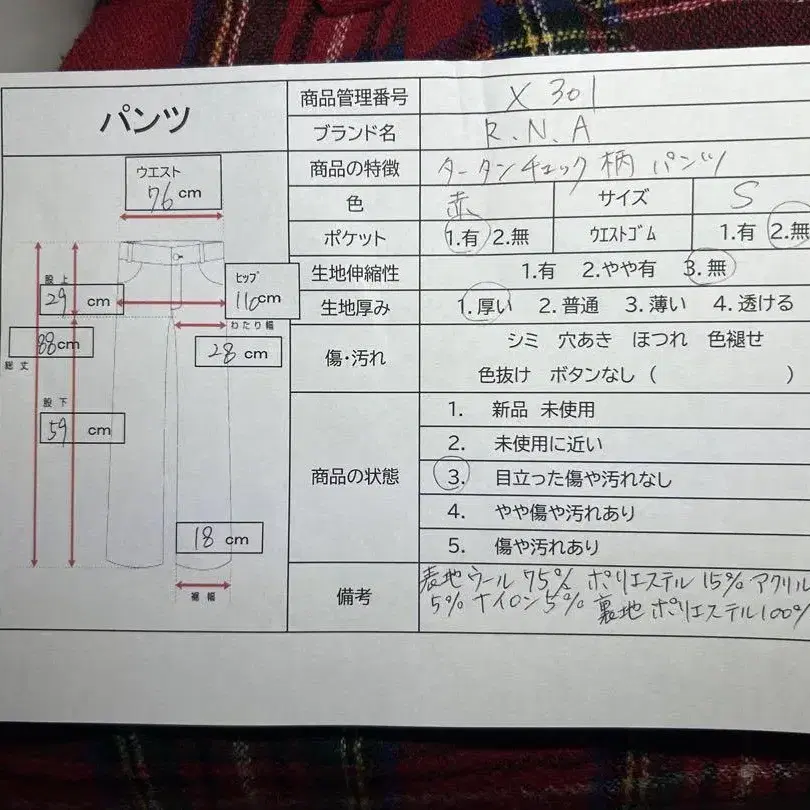 パンツ
商品管理番号 X 301
ブランド名 R.N.A
商品の特徴 タータンチェック柄 パンツ
色 赤 サイズ S
ポケット 1.有 2.無 ウエストゴム 1.有 2.無
生地伸縮性 1.有 2.やや有 3.無
生地厚み 1.厚い 2.普通 3.薄い 4.透ける
傷・汚れ シミ 穴あき ほつれ 色褪せ
色抜け ボタンなし ( )
商品の状態
1. 新品 未使用
2. 未使用に近い
3. 目立った傷や汚れなし
4. やや傷や汚れあり
5. 傷や汚れあり
備考 表地ウール 75% ポリエステル 15% アクリル
5% ナイロン 5% 裏地 ポリエステル 100%
ウエスト
76 cm
股上
29 cm
ヒップ
110cm
わたり幅
28 cm
88cm
総丈
股下
59 cm
18 cm
裾幅